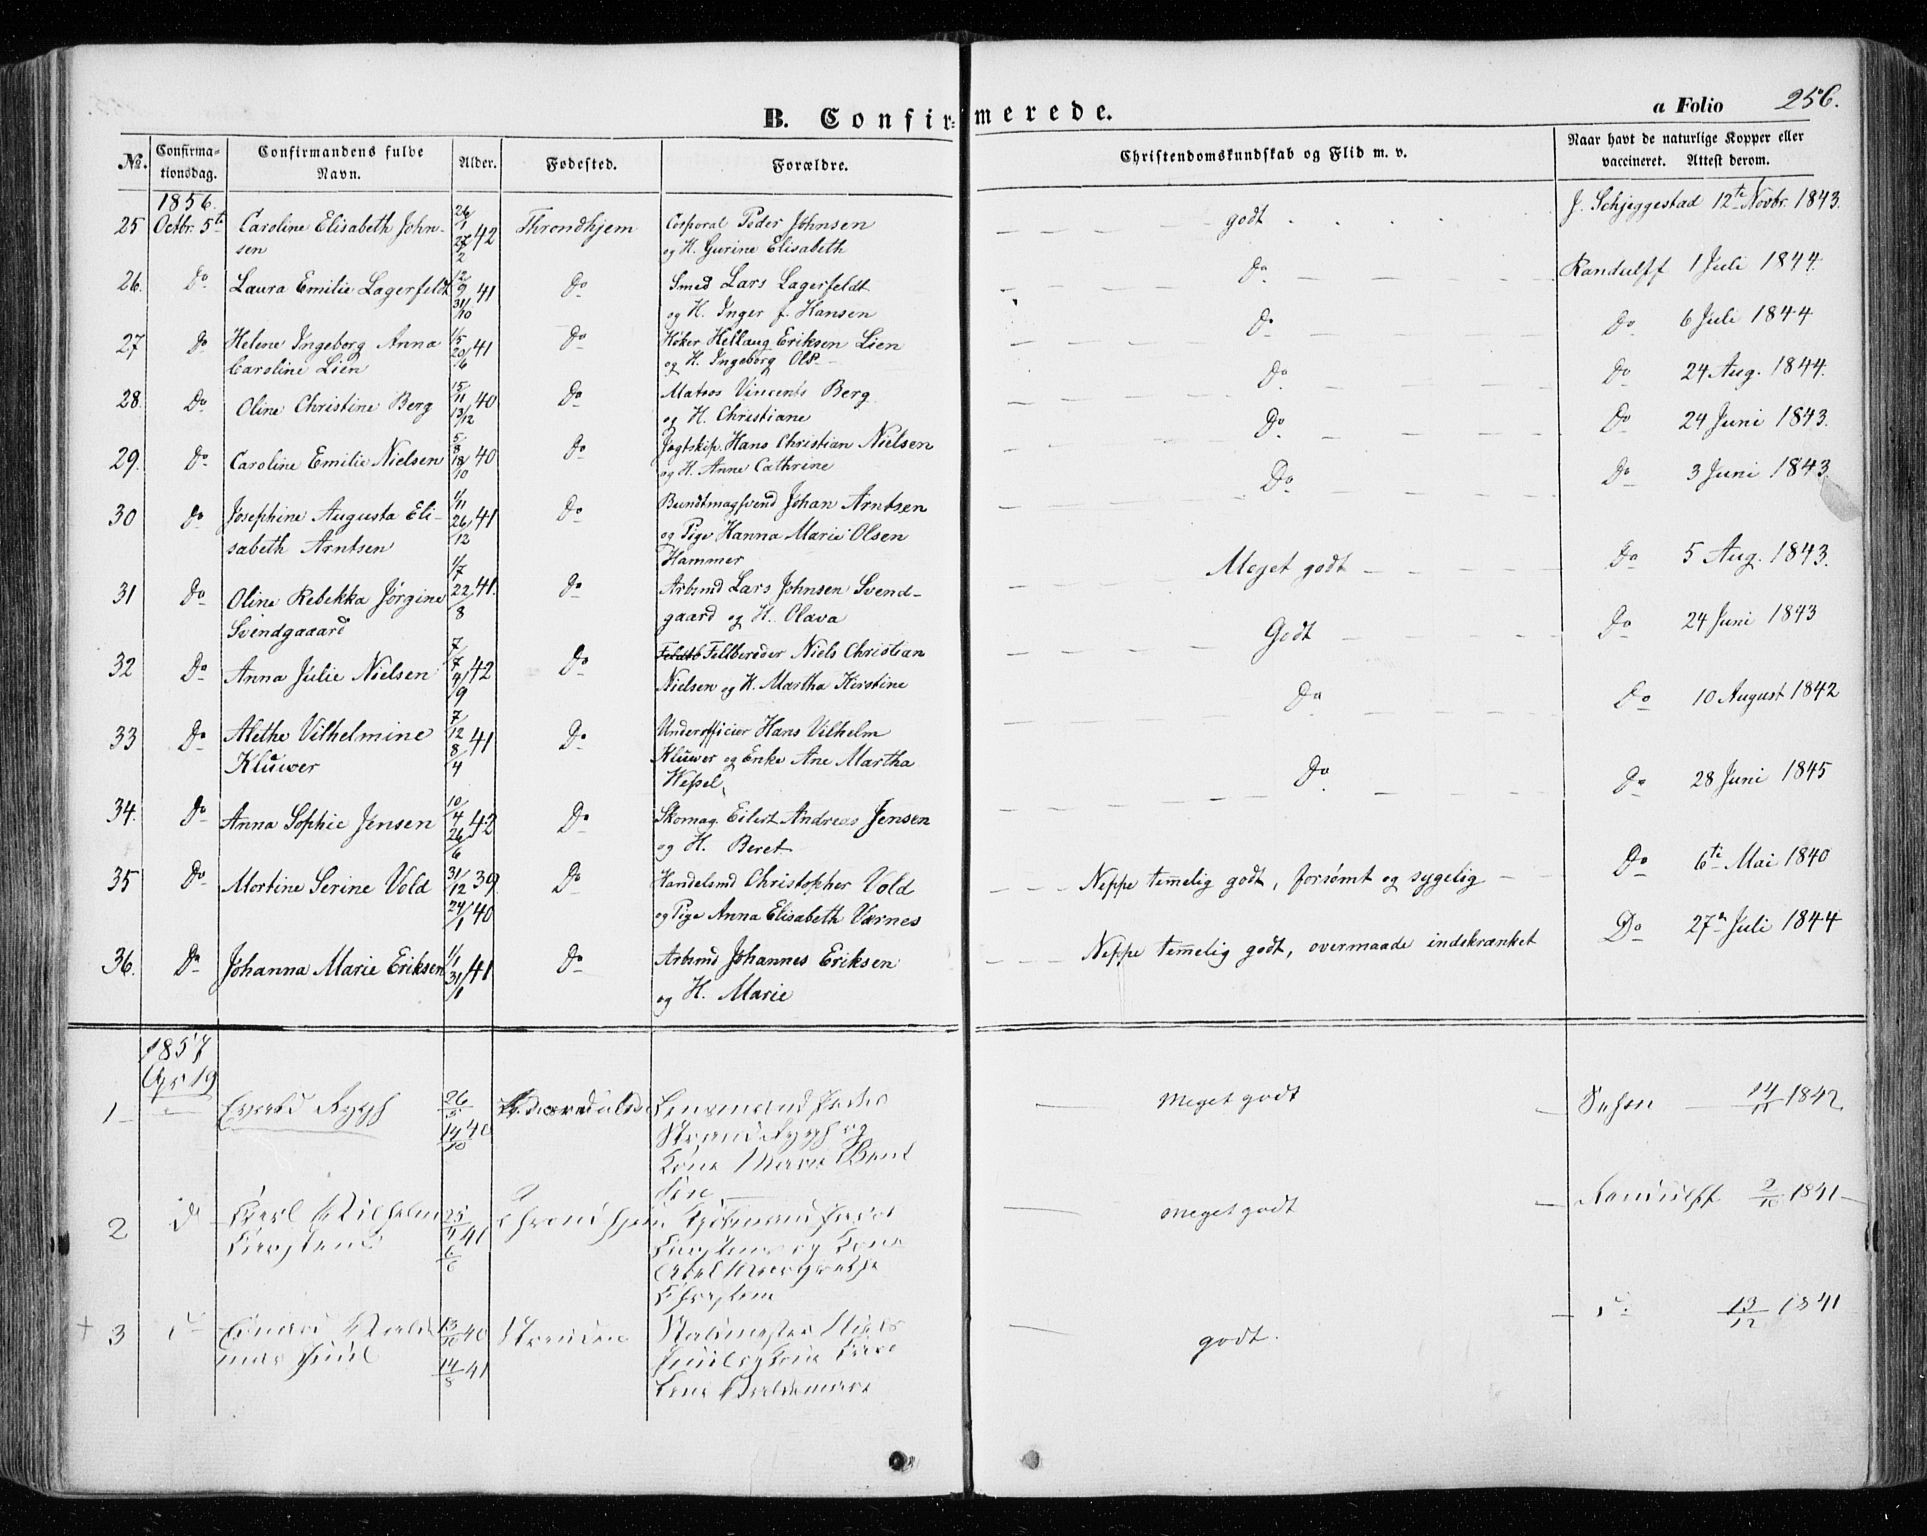 B. Confirmerede.
a Folio 256.
No.
Confirmationsdag.
Confirmandens fulde Navn.
Alder.
Fødested.
Forældre.
Christendomskundskab og Flid m. v.
Naar havt de naturlige Kopper eller vaccineret. Attest derom.
1856.
25 Octbr. 5te Caroline Elisabeth John- 26/1 Throndhjem Corporal Peder Johnsen godt J. Schjeggestad 12te Novbr. 1843.
sen 27/2 42 og H. Gurine Elisabeth
26. Do Laura Emilie Lagerfeldt 12/9 41 Do Smed Lars Lagerfeldt Do Randulff 1 Juli 1844.
31/10 og H. Inger f. Hansen
27 Do Helene Ingeborg Anna 1/5 41 Do Høker Hellaug Eriksen Lien Do Do 6 Juli 1844
Caroline Lien 20/6 og H. Ingeborg Olsᵈ
28. Do Oline Christine Berg 15/11 40 Do Matros Vincents Berg Do Do 24 Aug. 1844.
13/12 og H. Christiane
29. Do Caroline Emilie Nielsen 5/8 40 Do Jagtskip. Hans Christian Nielsen Do Do 24 Juni 1843.
18/10 og H. Anne Cathrine
30 Do Josephine Augusta Eli- 1/11 41 Do Bundtmagsvend Johan Arntsen Do Do 3 Juni 1843.
sabeth Arntsen 26/12 og Pige Hanna Marie Olsen
Hammer
31 Do Oline Rebekka Jørgine 1/7 41. Do Arbmd Lars Johnsen Svend- Meget godt Do 5 Aug. 1843.
Svendgaaard 22/8 gaard og H. Olava
32 Do Anna Julie Nielsen 7/7 42 Do Feldtb Fellbereder Niels Christian Godt Do 24 Juni 1843
4/9 Nielsen og H. Martha Kirstine
33 Do Alethe Vilhelmine 7/12 41 Do Underofficier Hans Vilhelm Do Do 10 August 1842
Kluwer 8/4 Kluwer og Enke Ane Martha
Wessel
34. Do Anna Sophie Jensen 10/4 42 Do Skomag. Eilert Andreas Jensen Do Do 28 Juni 1845
26/6 og H. Beret
35 Do Mortine Serine Vold 31/12 39 Do Handelsmd Christopher Vold Neppe temelig godt, forsømt og sygelig Do 6te Mai 1840
24/1 40 og Pige Anna Elisabeth Værnes
36. Do Johanna Marie Eriksen 1/1 41 Do Arbmd Johannes Eriksen Neppe temelig godt, overmaade indskrænket Do 27n Juli 1844
31/1 og H. Marie
1857
Apr 19
1 Rygh 26/5 Lensmand Peder Meget godt 14/11 1842
14/10 40 Strand Rygh og
Kone Marie Bent
dine
2 d Carl Vilhelm 25/ 41 Throndhjem Meget godt Randulff 2/10 1841
6/6 og Kone
Abel Margrethe
3 do 13/10 40 Strinden Niels godt. do 13/12 1841
mar Juul 14/8 41 Juul og Kone